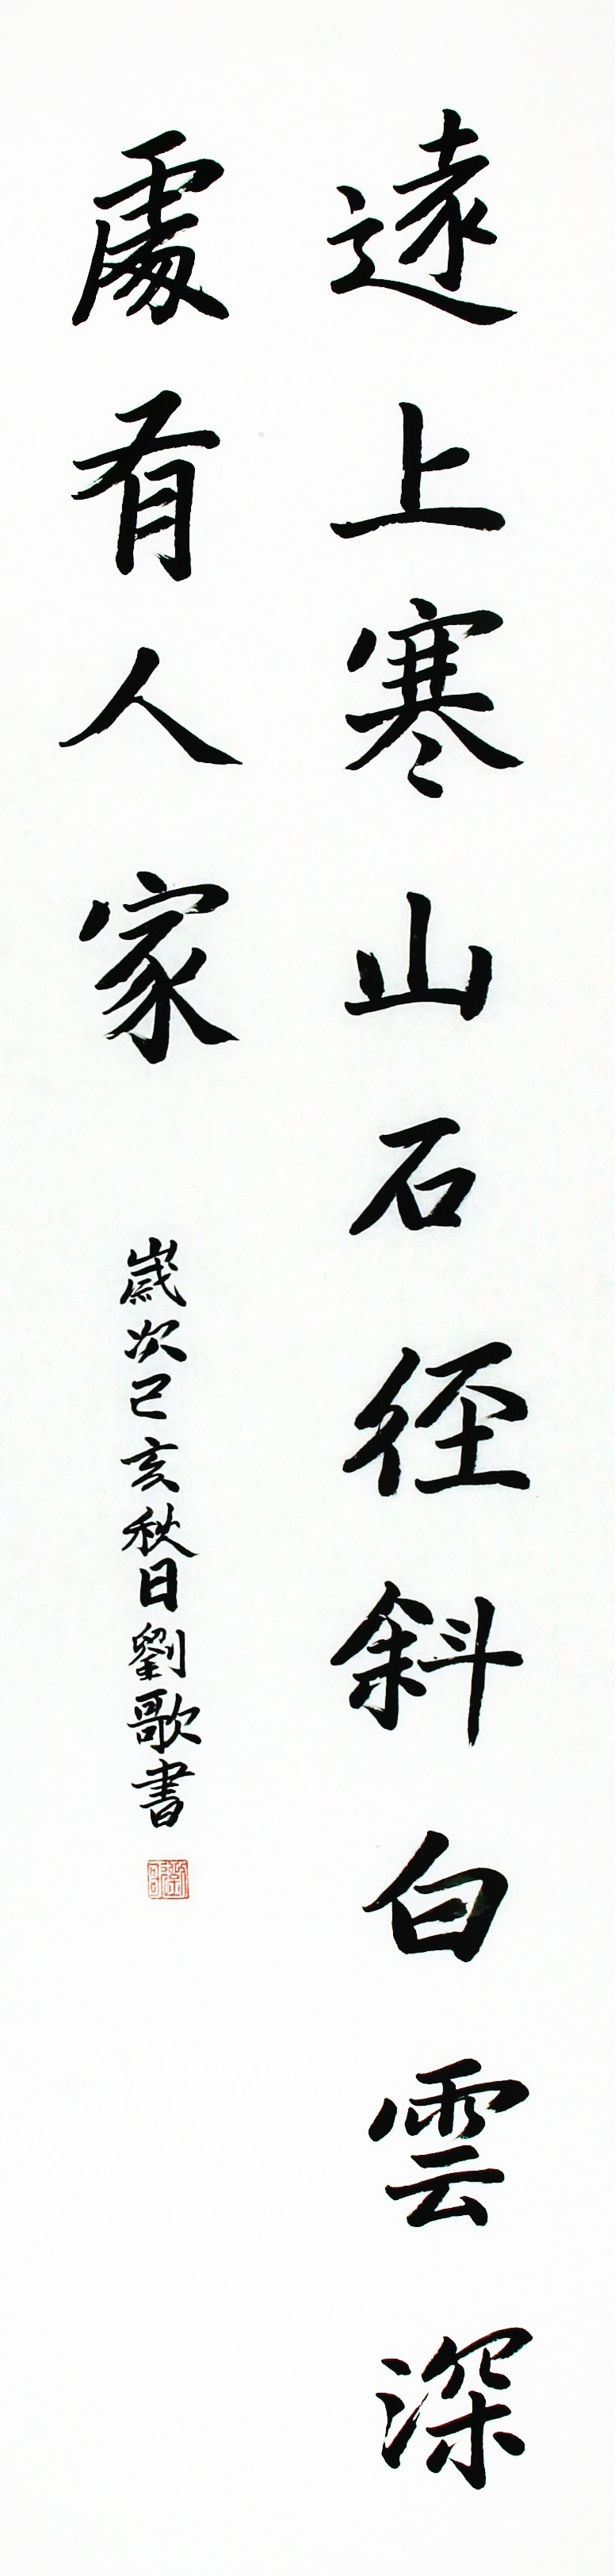 遠上寒山石徑斜白雲深
處有人家
歲次己亥秋日劉歌書